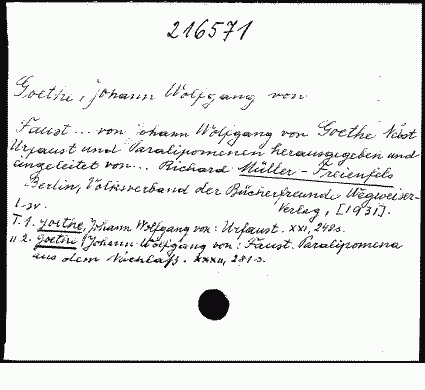 216571
Goethe, Johann Wolfgang von
Faust ... von Johann Wolfgang von Goethe Nebst
Urfaust und Paralipomenen herausgegeben und
eingeleitet von ... Richard Müller-Freienfels
Berlin, Volksverband der Bücherfreunde Wegweiser-
Verlag, [1931].
1-sv.
T. 1. Goethe, Johann Wolfgang von: Urfaust. XXI, 248 s.
" 2. Goethe, Johann Wolfgang von: Faust. Paralipomena
aus dem Nachlaß. XXXII, 281 s.